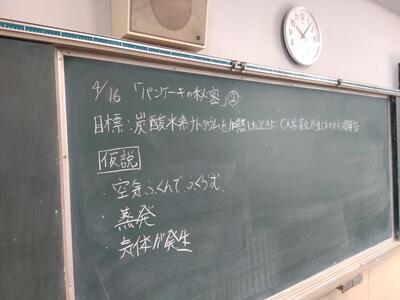 4/16 「パンケーキの秘密」②
目標:炭酸水素ナトリウムを加熱したとき、どんな変化が
仮説
・空気ふくんでふくらむ
・蒸発
・気体が発生